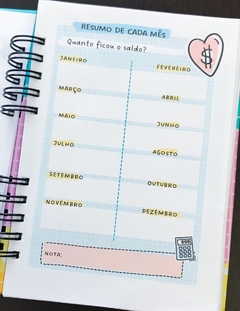 RESUMO DE CADA MÊS
Quanto ficou o saldo?
$
JANEIRO
FEVEREIRO
MARÇO
ABRIL
MAIO
JUNHO
JULHO
AGOSTO
SETEMBRO
OUTUBRO
NOVEMBRO
DEZEMBRO
NOTA: